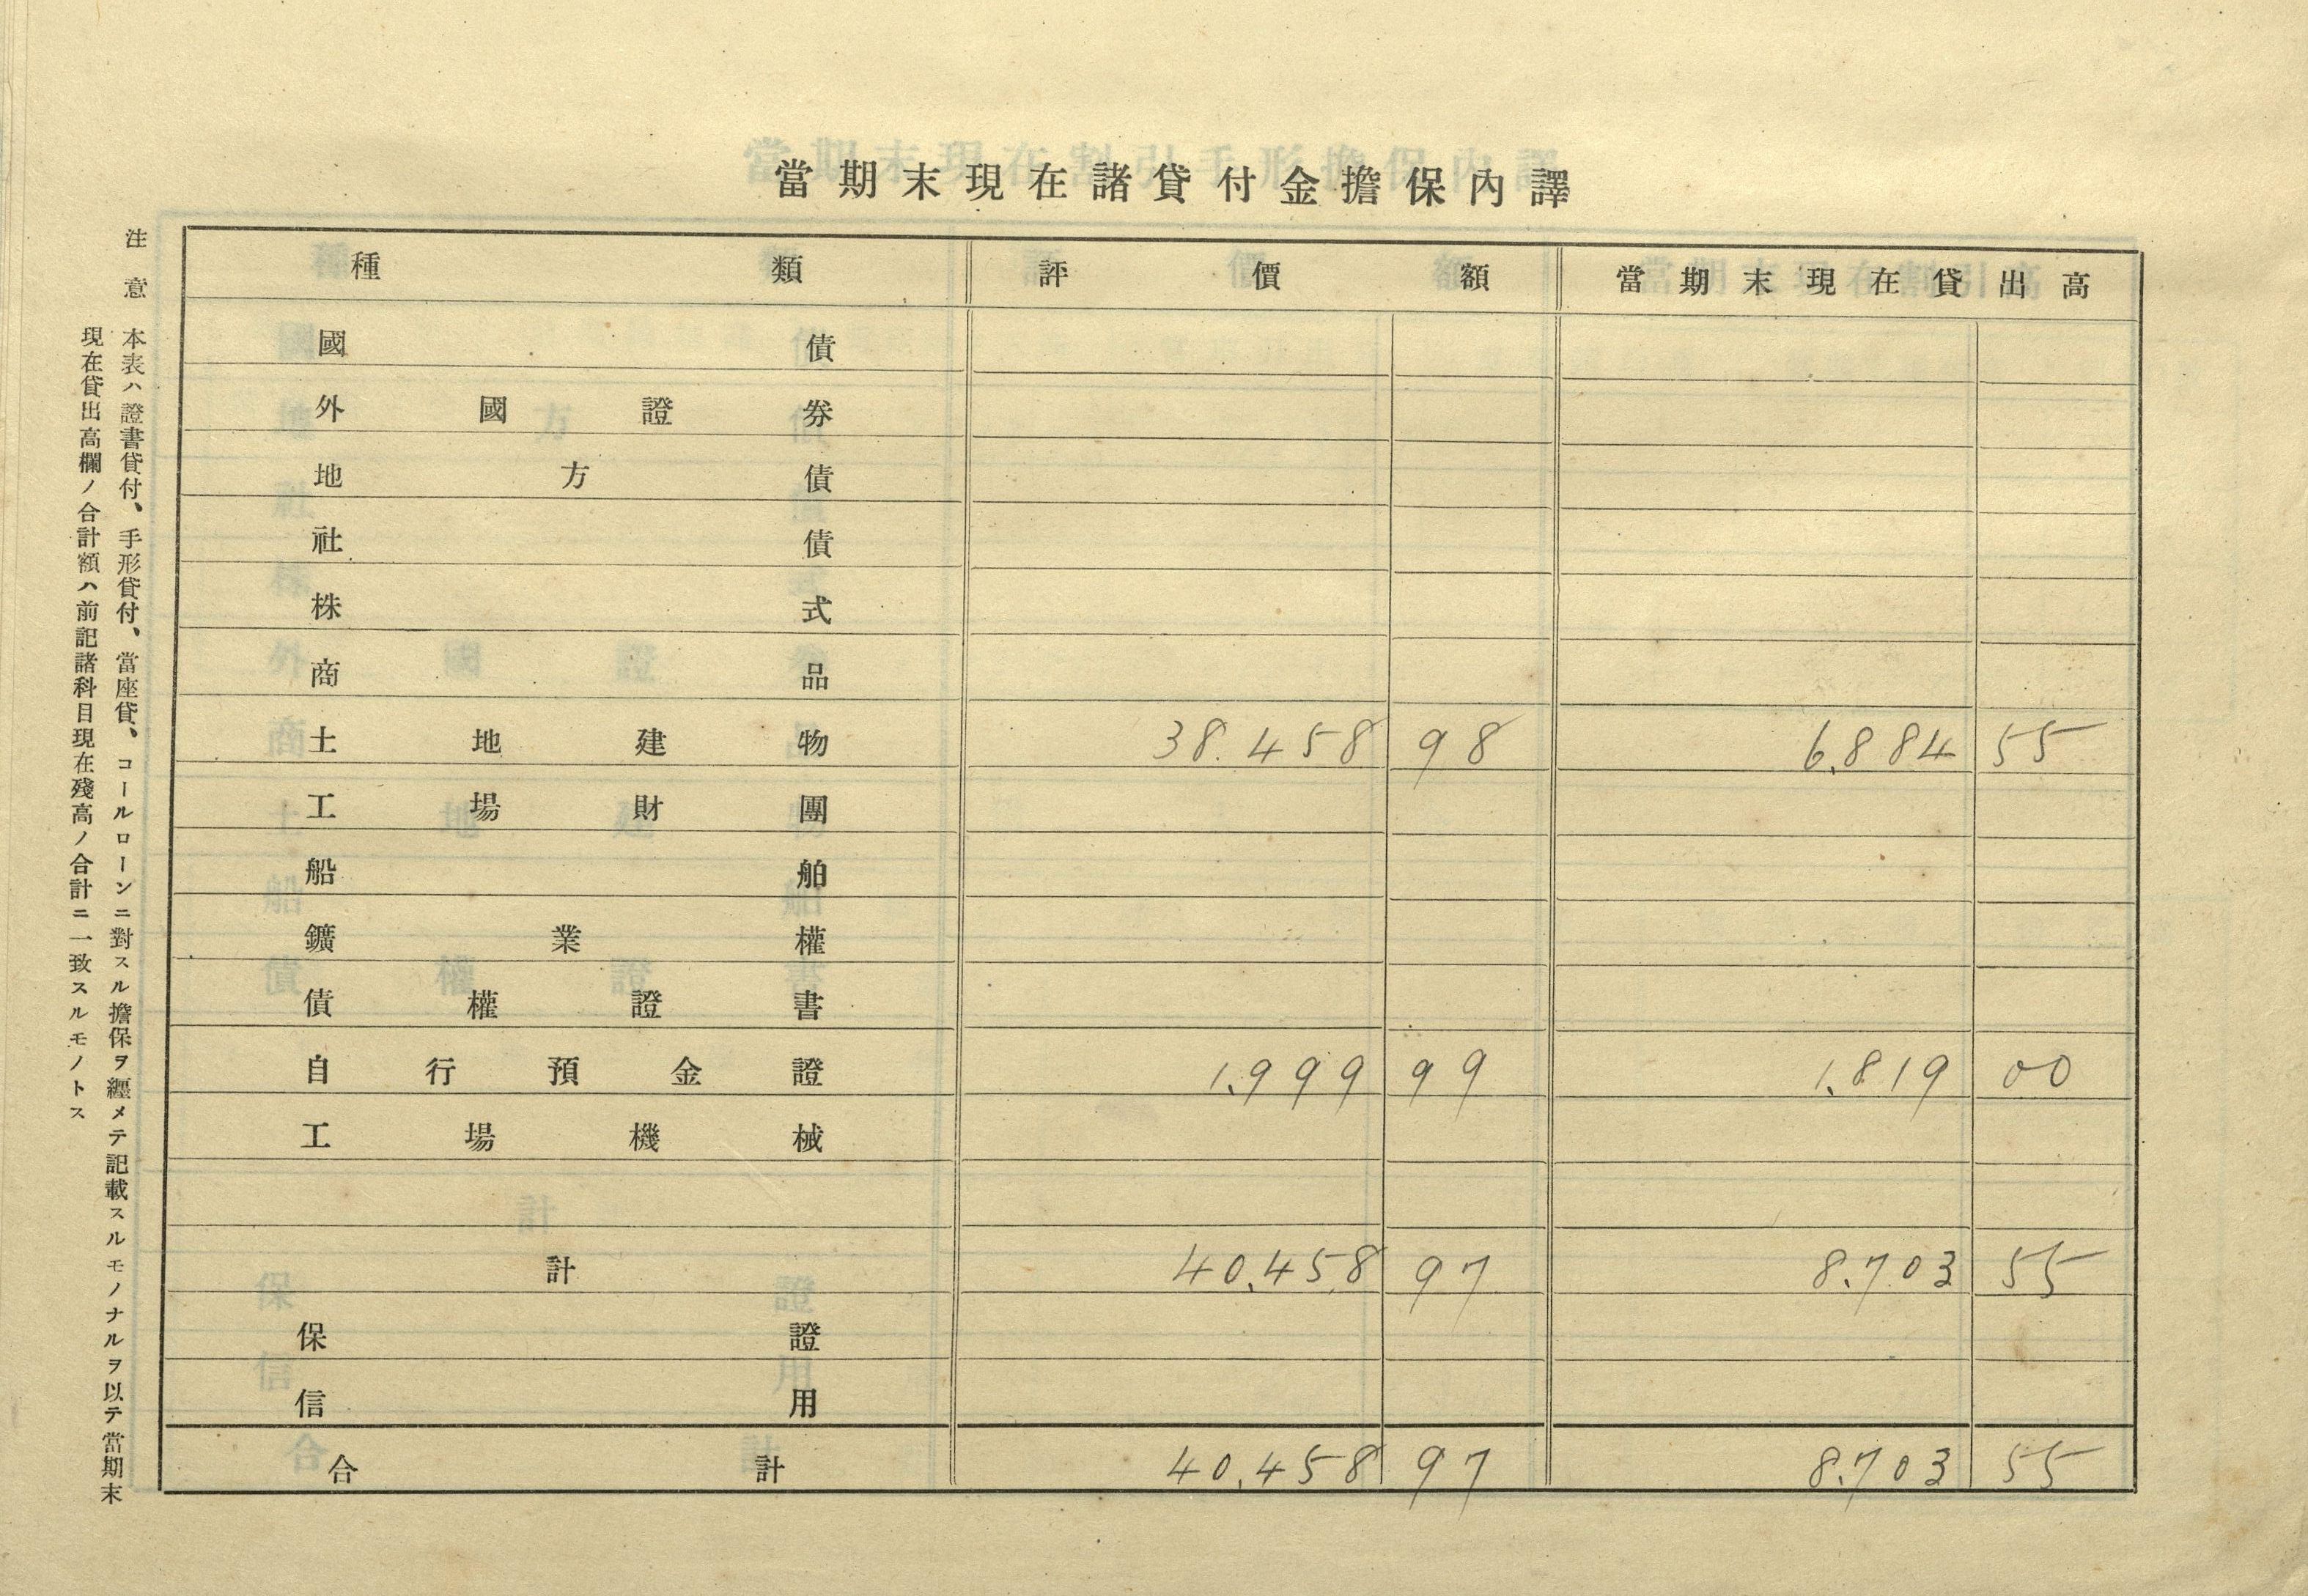 當期末現在諸貸付金擔保內譯
種類 評價額 當期末現在貸出高
國債
外國證券
地方債
社債
株式
商品
土地建物 38.458 98 6.884 55
工場財團
船舶
鑛業權
債權證書
自行預金證 1.999 99 1.819 00
工場機械
計 40.458 97 8.703 55
保證
信用
合計 40.458 97 8.703 55
注意
本表ハ證書貸付、手形貸付、當座貸、コールローンニ對スル擔保ヲ纒メテ記載スルモノナルヲ以テ當期末
現在貸出高欄ノ合計額ハ前記諸科目現在殘高ノ合計ニ一致スルモノトス